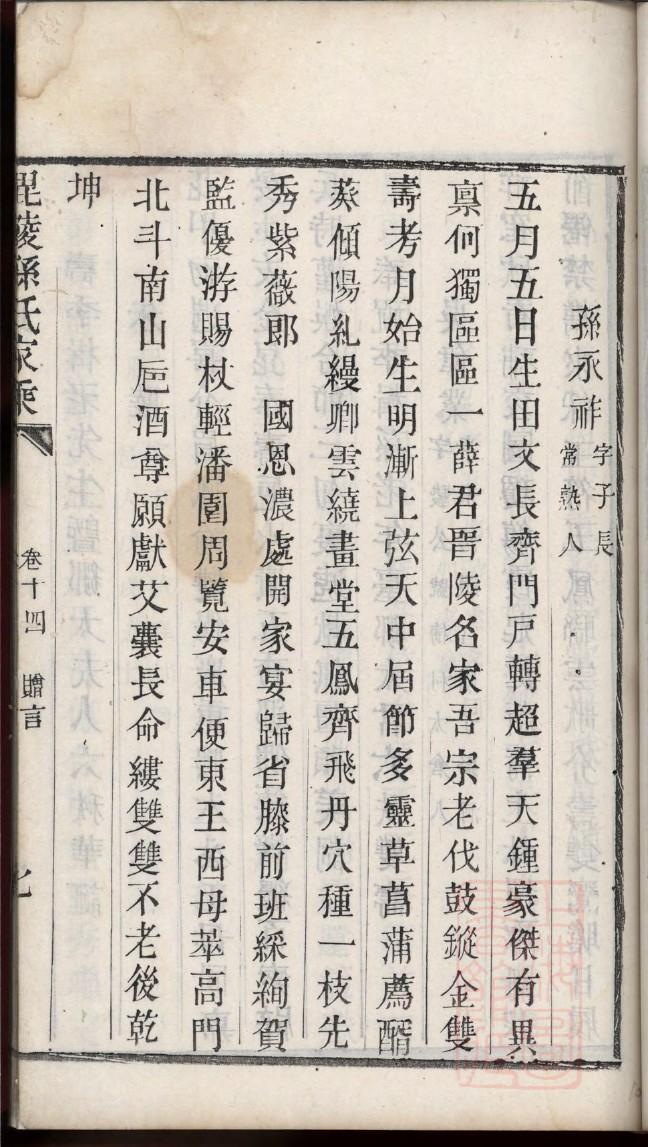 孫永祚字子長常熟人
五月五日生田文長齊門戸轉超羣天鍾豪傑有異
稟何獨區區一薛君晋陵名家吾宗老伐鼓鏦金雙
壽考月始生明漸上弦天中屆節多靈草菖蒲薦醑
葵傾陽糺縵卿雲繞畫堂五鳳齊飛丹穴種一枝先
秀紫薇郎　國恩濃處開家宴歸省膝前班綵絢賀
監優游賜杖輕潘園周覽安車便東王西母萃高門
北斗南山巵酒尊願獻艾囊長命縷雙雙不老後乾
坤
毘陵孫氏家乘
卷十四　贈言